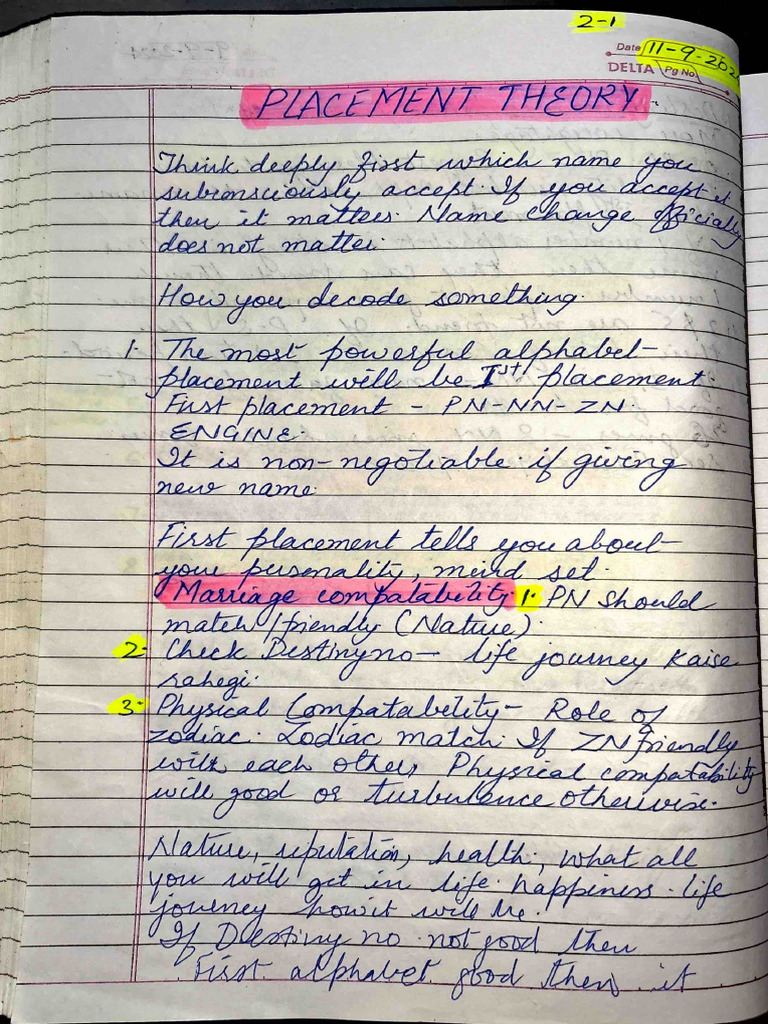 2-1
Date 11-9-202
DELTA Pg No
PLACEMENT THEORY
Think deeply first which name you
subconsciously accept. If you accept it
then it matters. Name change officially
does not matter.
How you decode something.
1. The most powerful alphabet-
placement will be Ist placement.
First placement - PN-NN-ZN
ENGINE.
It is non-negotiable if giving
new name.
First placement tells you about
your personality, meind set.
Marriage compatability. 1. PN should
match/friendly (Nature).
2. Check Destiny no - life journey kaise
rahegi.
3. Physical Compatability - Role of
zodiac. Zodiac match. If ZN friendly
with each other, Physical compatability
will good or turbulence otherwise.
Nature, reputation, health, what all
you will get in life. happiness. life
journey how it will be.
If Destiny no. not good then
First alphabet good then it